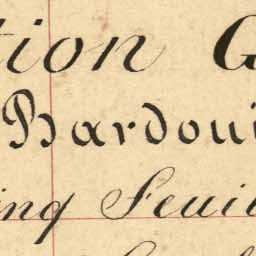 tion G
Hardoui
inq Feuil